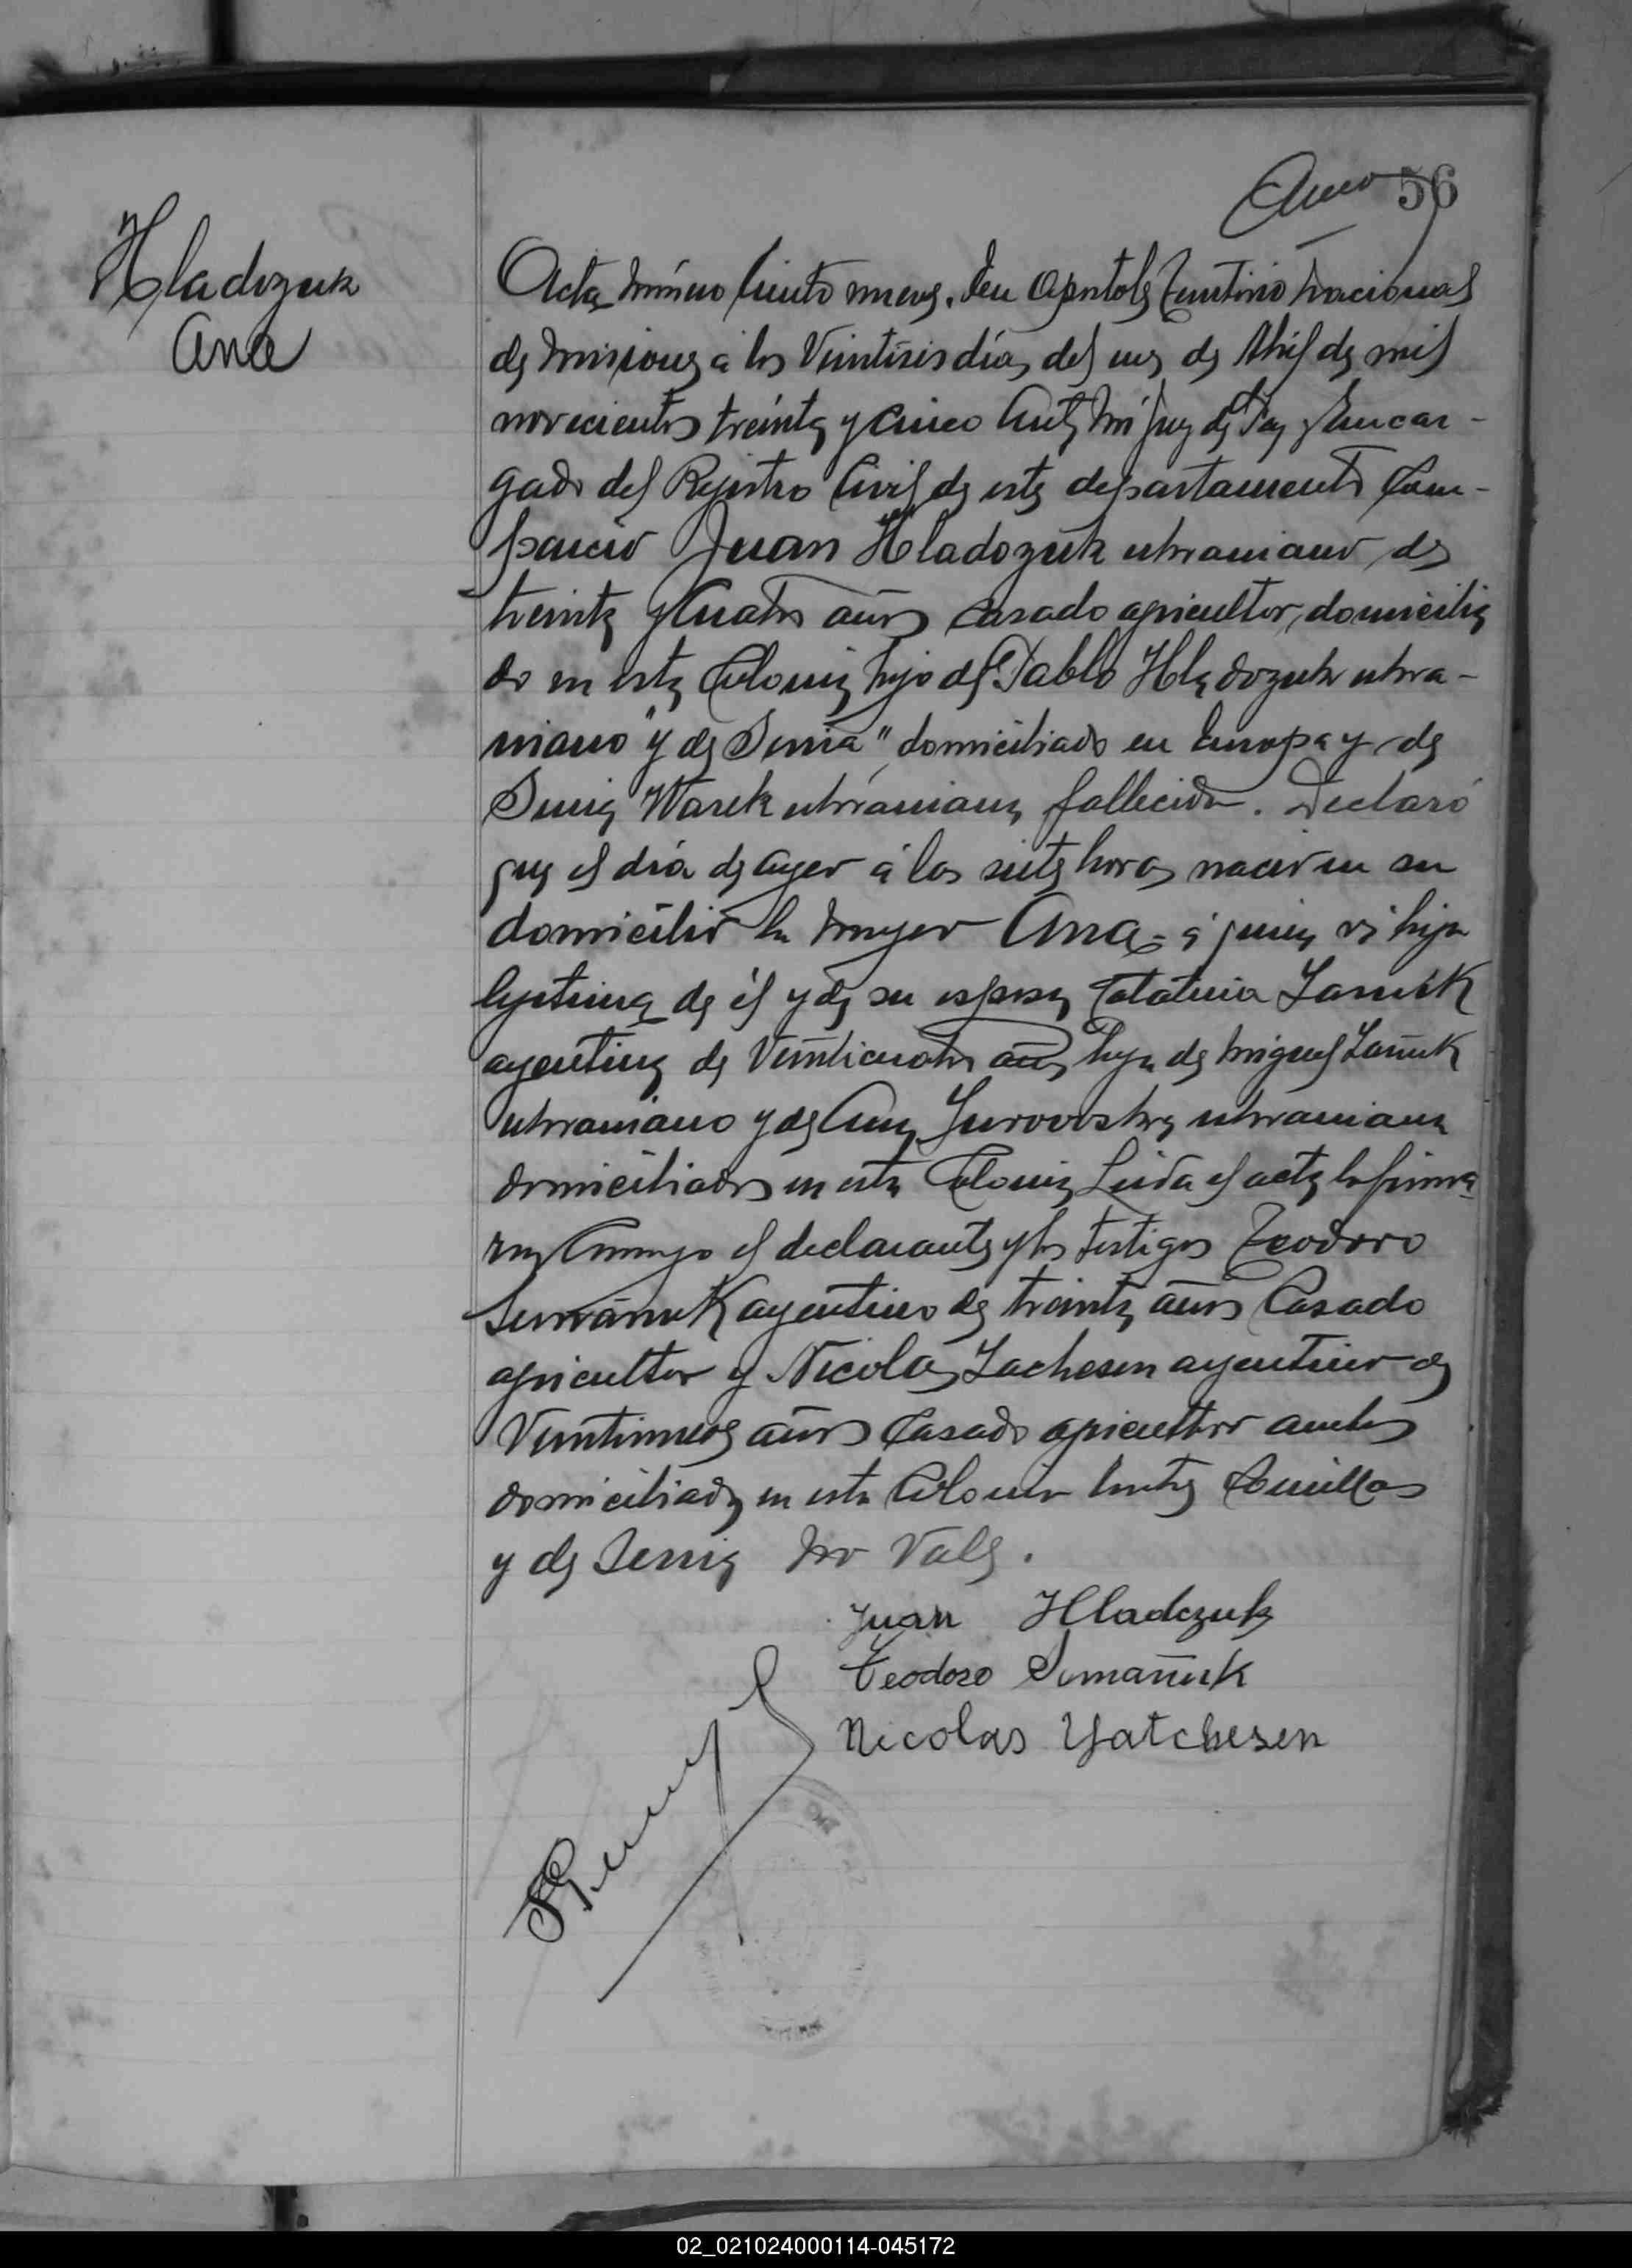 56
Hladozuk
Ana
Acta número ciento nueve. En Apostoles Territorio Nacional
de Misiones a los Veintiseis dias del mes de Abril de mil
novecientos treinta y cinco Ante mi Juez de Paz y Encar-
gado del Rejistro Civil de este departamento Com-
parecio Juan Hladozuk ukraniano de
treinta y cuatro años casado agricultor, domicilia
do en esta Colonia hijo de Pablo Hladozuk ukra-
niano "y de Senia" domiciliado en Europa y de
Senia Warek ukraniana fallecida. Declaró
que el día de ayer á las siete horas nacio en su
domicilio la mujer Ana = á quien vi hija
lejitima de él y de su esposa Catalina Zanuk
argentina de Veinticuatro años hija de Miguel Zanuk
ukraniano y de Ana Jurovoska ukraniana
domiciliados en esta Colonia Leida el acta la firma
ron Conmigo el declarante y los testigos Teodoro
Semañuk argentino de treinta años Casado
agricultor y Nicolas Yachesen argentino de
Veintinueve años Casado agricultor ambos
domiciliados en esta Colonia Entre Comillas
y de Senia No Vale.
Juan Hladczuk
Teodoro Semañuk
Nicolas Yatchesen
02_021024000114-045172